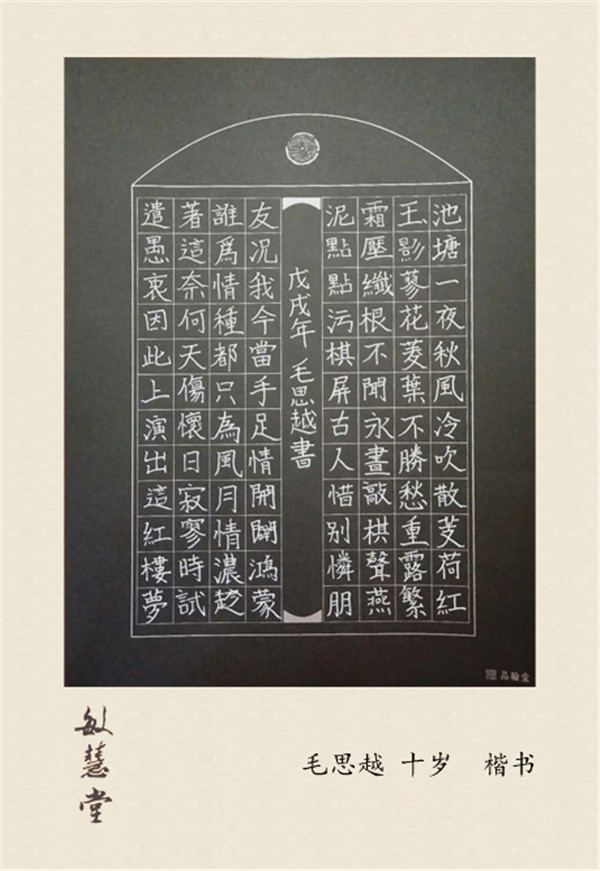 池塘一夜秋風冷吹散芰荷紅
玉影蓼花菱葉不勝愁重露繁
霜壓纖根不聞永晝敲棋聲燕
泥點點污棋屏古人惜別憐朋
戊戌年 毛思越書
友况我今當手足情開闢鴻蒙
誰爲情種都只為風月情濃趁
著這奈何天傷懷日寂寥時試
遣愚衷因此上演出這紅樓夢
品翰堂
敏慧堂
毛思越 十岁 楷书